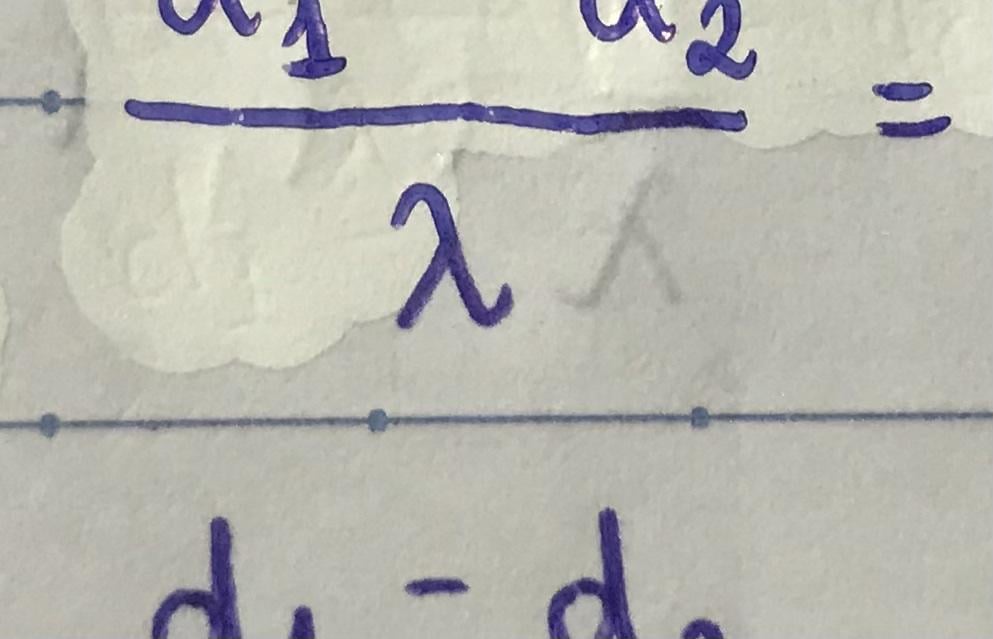 d₁ d₂
λ =
d₁ - d₂